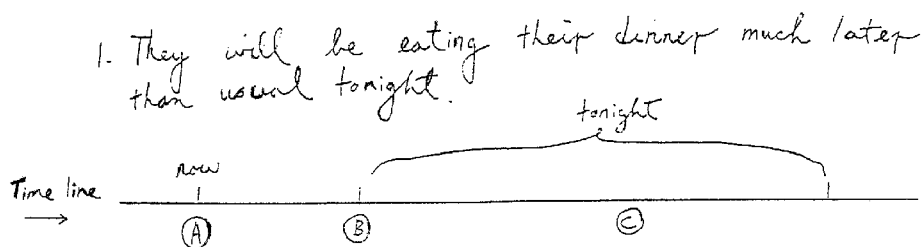 1. They will be eating their dinner much later
than usual tonight.
tonight
now
Time line
A B C